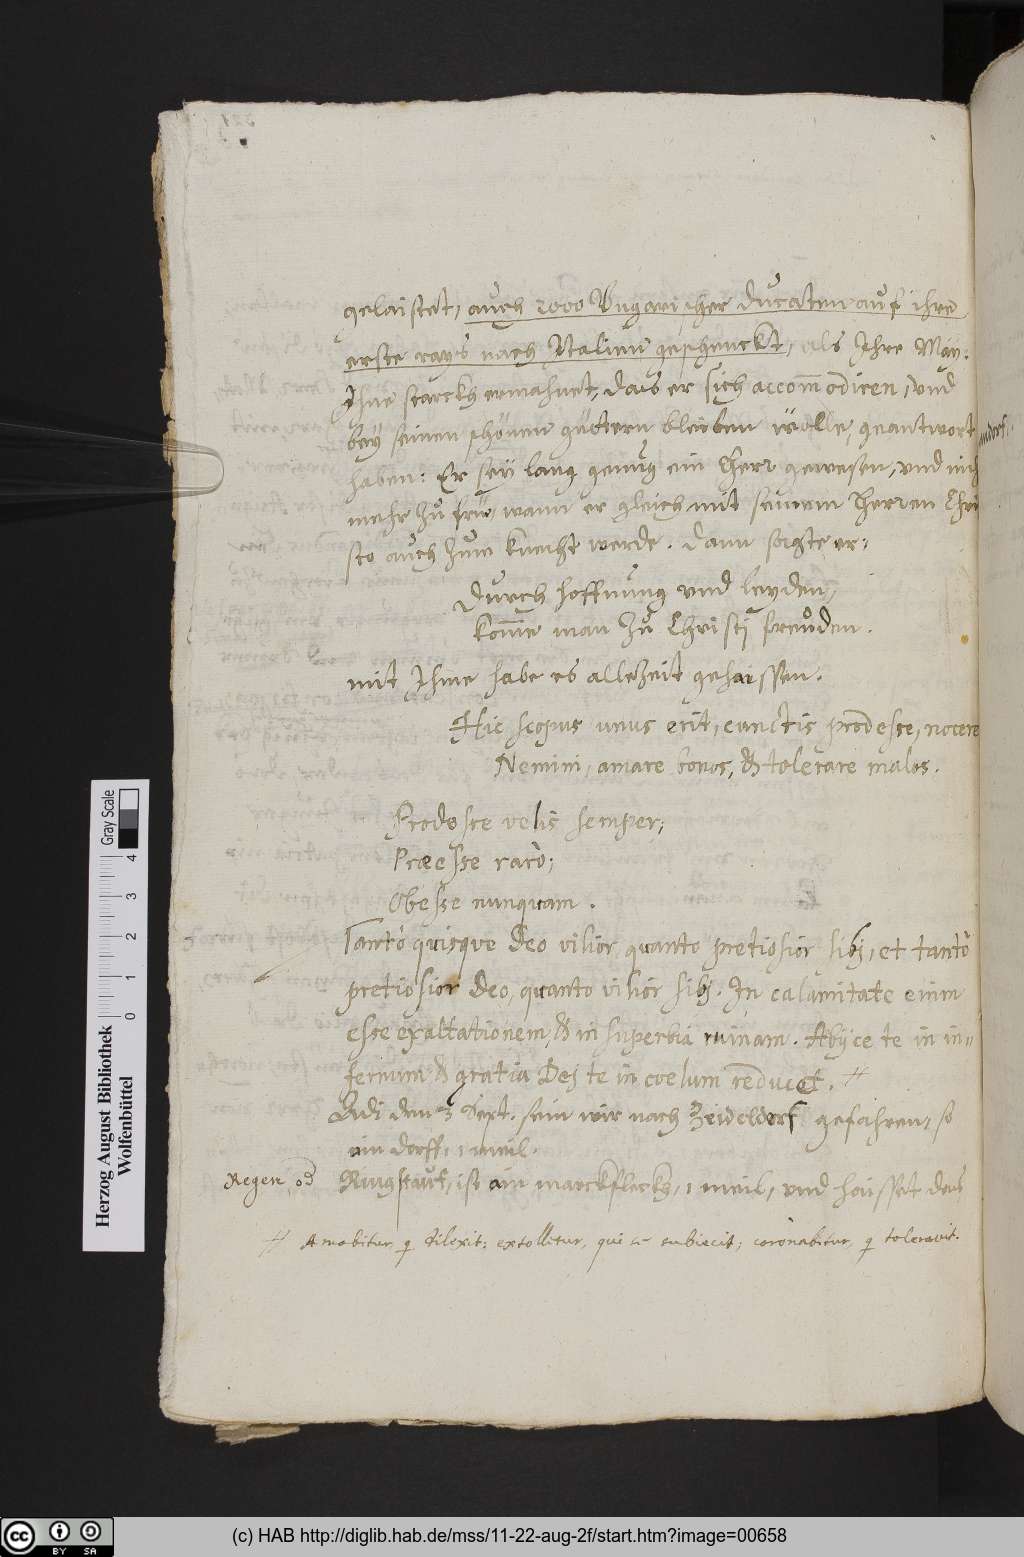 gelaistet, auch 2000 Vngarischer ducaten auf ihre
erste rays nach Italien geschenckt, als Ihre May:
Ihne starckh ermahnet, das er sich accom̄odiren, vnd
bey seinen schönen güettern bleiben wolle, geantwort
haben: Er sey lang genug ein Herr gewesen, vnd nich
mehr zu frü, wann er gleich mit seinem Herren Chri
sto auch zum knecht werde. dann sagte er:
durch hoffnung vnd leyden,
kom̄e man zu Christj freuden.
mit Ihme habe es allezeit gehaissen.
Hic scopus unus erit, cunctis prodesse, nocere
Nemini, amare bonos, & tolerare malos.
Prodesse velis semper;
Præesse rarò;
Obesse nunquam.
Tantò quisque Deo vilior, quanto pretiosior sibj, et tantò
pretiosior Deo, quanto vilior sibj. In calamitate enim
esse exaltationem, & in superbia ruinam. Abijce te in in=
fernum & gratia Dej te in coelum reducet. #
Adi den 3 Sept. sein wir nach Zeideldorf gefahren, so
ain dorff, 1 meil.
Regen od Ringstauf, ist ain marckfleckh, 1 meil, vnd haisset das
# Amabitur, q dilexit; extollitur, qui se subiecit; coronabitur, q toleravit.
Herzog August Bibliothek
Wolfenbüttel
0 1 2 3 4
Gray Scale
cc BY SA
(c) HAB http://diglib.hab.de/mss/11-22-aug-2f/start.htm?image=00658